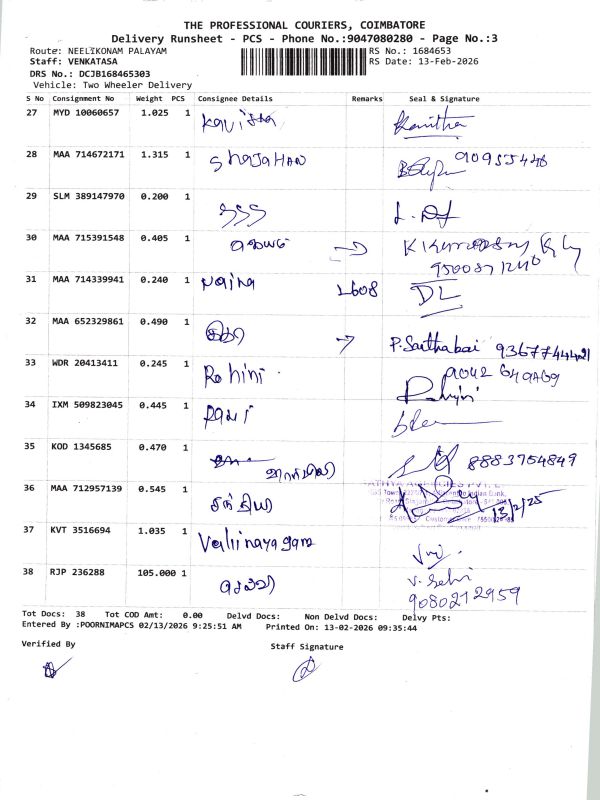 THE PROFESSIONAL COURIERS, COIMBATORE
Delivery Runsheet - PCS - Phone No.:9047080280 - Page No.:3
Route: NEELIKONAM PALAYAM RS No.: 1684653
Staff: VENKATASA RS Date: 13-Feb-2026
DRS No.: DCJB168465303
Vehicle: Two Wheeler Delivery
S No Consignment No Weight PCS Consignee Details Remarks Seal & Signature
27 MYD 10060657 1.025 1 Kavitha Kavitha
28 MAA 714672171 1.315 1 SHAJAHAN
29 SLM 389147970 0.200 1
30 MAA 715391548 0.405 1
31 MAA 714339941 0.240 1 Naina 2608 DL
32 MAA 652329861 0.490 1 P.Sarthabai
33 WDR 20413411 0.245 1 Rohini
34 IXM 509823045 0.445 1 Ravi
35 KOD 1345685 0.470 1 8883754849
36 MAA 712957139 0.545 1 13/2/25
37 KVT 3516694 1.035 1 Vallinayagam
38 RJP 236288 105.000 1 செல்வி V. Selvi
9080212959
Tot Docs: 38 Tot COD Amt: 0.00 Delvd Docs: Non Delvd Docs: Delvy Pts:
Entered By :POORNIMAPCS 02/13/2026 9:25:51 AM Printed On: 13-02-2026 09:35:44
Verified By Staff Signature